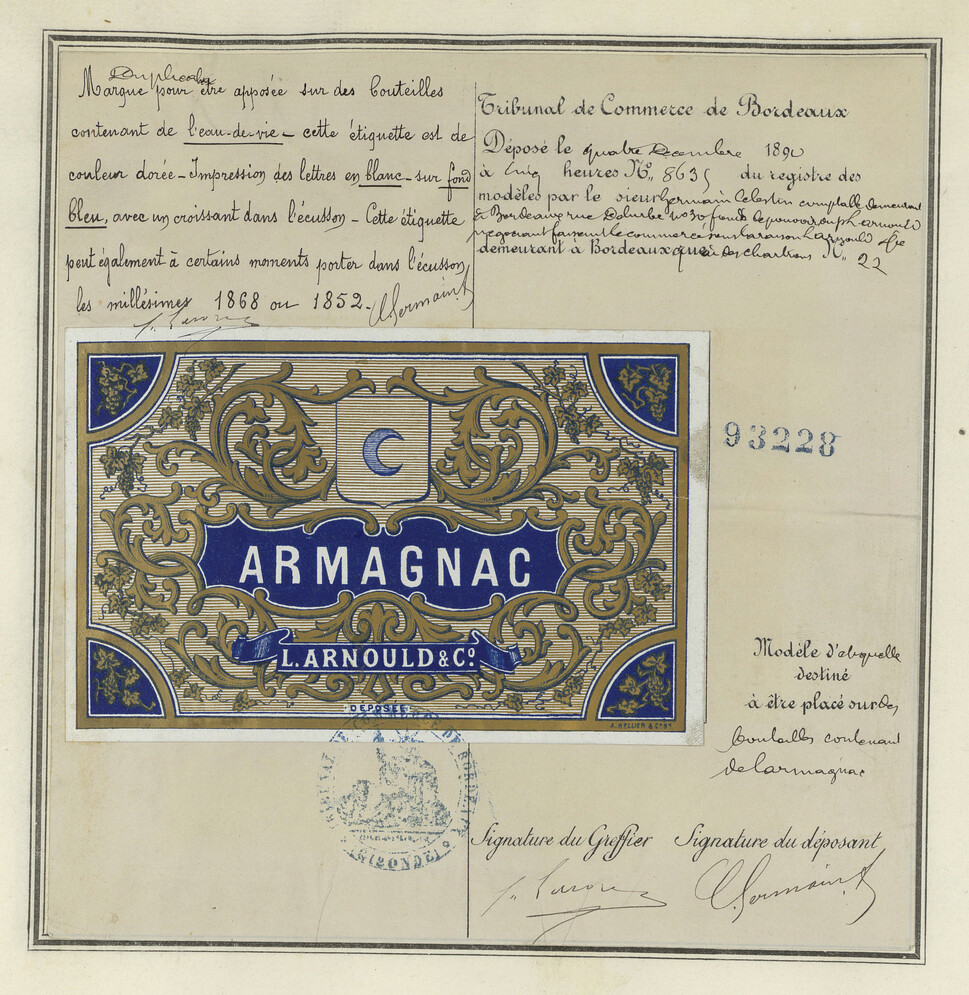 Duplicata
Marque pour être apposée sur des bouteilles
contenant de l'eau-de-vie - cette étiquette est de
couleur dorée - Impression des lettres en blanc - sur fond
bleu, avec un croissant dans l'écusson - Cette étiquette
peut également à certains moments porter dans l'écusson
les millésimes 1868 ou 1852 -
Tribunal de Commerce de Bordeaux
Déposé le quatre Décembre 1890
à cinq heures N° 8635 du registre des
modèles par le sieur Germain Célestin comptable demeurant
à Bordeaux rue Delurbe N° 30 fondé de pouvoir Arnould
négociant faisant le commerce sous la raison L. Arnould & Cie
demeurant à Bordeaux quai des chartrons N° 22
93228
ARMAGNAC
L. ARNOULD & Cº
DÉPOSÉE
Modèle d'étiquette
destiné
à être placé sur des
bouteilles contenant
de l'armagnac
TRIBUNAL DE BORDEAUX
(GIRONDE)
Signature du Greffier Signature du déposant
C. Germain